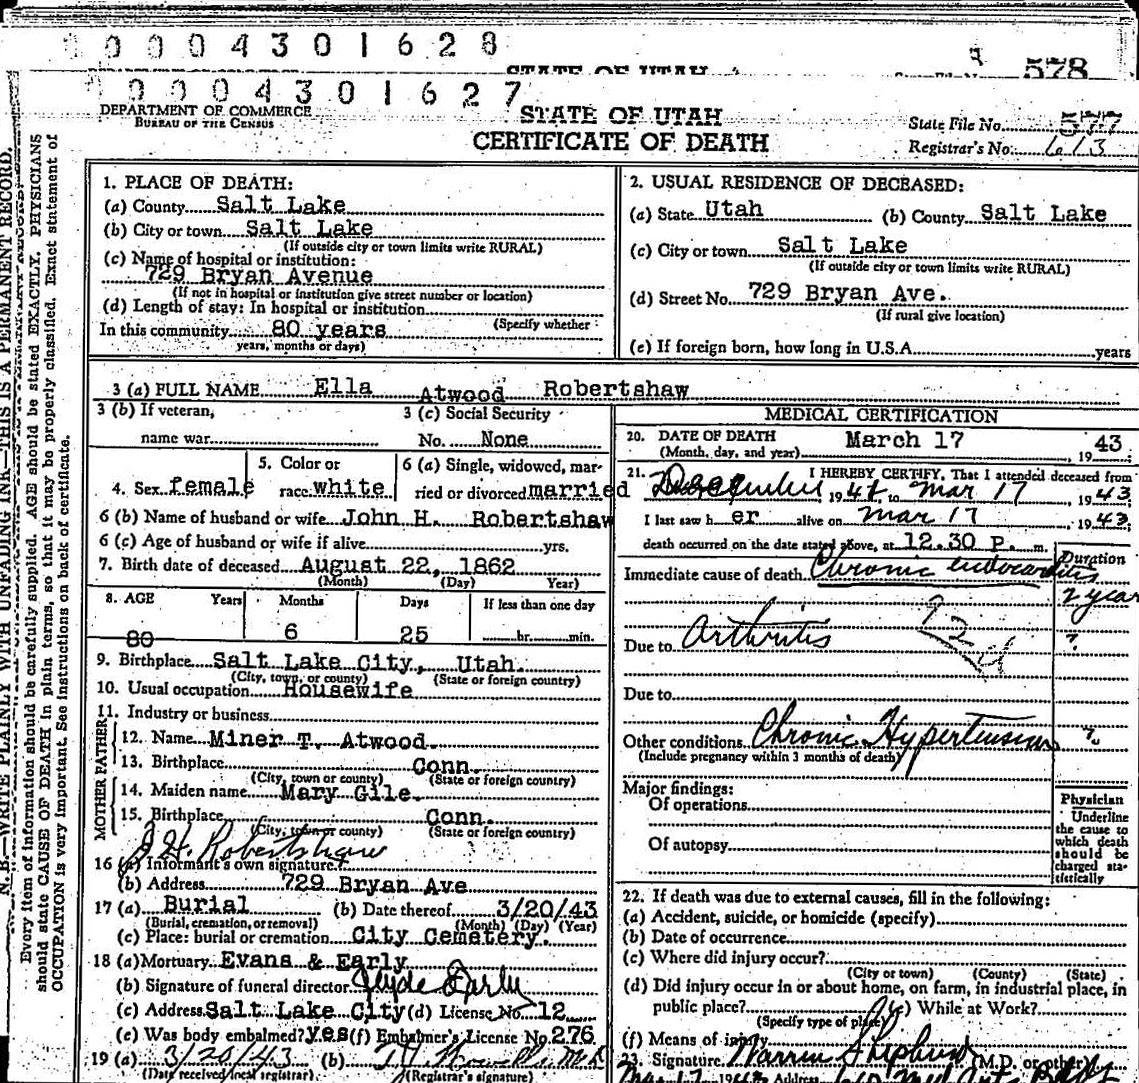 0 0 0 4 3 0 1 6 2 8
STATE OF UTAH
578
0 0 0 4 3 0 1 6 2 7
DEPARTMENT OF COMMERCE
BUREAU OF THE CENSUS
STATE OF UTAH
CERTIFICATE OF DEATH
State File No. 577
Registrar's No. 613
N. B.—WRITE PLAINLY WITH UNFADING INK—THIS IS A PERMANENT RECORD.
Every item of information should be carefully supplied. AGE should be stated EXACTLY. PHYSICIANS
should state CAUSE OF DEATH in plain terms, so that it may be properly classified. Exact statement of
OCCUPATION is very important. See instructions on back of certificate.
1. PLACE OF DEATH:
(a) County Salt Lake
(b) City or town Salt Lake
(If outside city or town limits write RURAL)
(c) Name of hospital or institution:
729 Bryan Avenue
(If not in hospital or institution give street number or location)
(d) Length of stay: In hospital or institution
(Specify whether
In this community 80 years
years, months or days)
2. USUAL RESIDENCE OF DECEASED:
(a) State Utah (b) County Salt Lake
(c) City or town Salt Lake
(If outside city or town limits write RURAL)
(d) Street No. 729 Bryan Ave.
(If rural give location)
(e) If foreign born, how long in U.S.A. years
3 (a) FULL NAME Ella Atwood Robertshaw
3 (b) If veteran, name war
3 (c) Social Security No. None
4. Sex female
5. Color or race white
6 (a) Single, widowed, married or divorced married
6 (b) Name of husband or wife John H. Robertshaw
6 (c) Age of husband or wife if alive yrs.
7. Birth date of deceased August 22, 1862
(Month) (Day) Year)
8. AGE Years Months Days If less than one day
80 6 25 hr. min.
9. Birthplace Salt Lake City, Utah.
(City, town, or county) (State or foreign country)
10. Usual occupation Housewife
11. Industry or business
FATHER
12. Name Miner T. Atwood.
13. Birthplace Conn.
(City, town or county) (State or foreign country)
MOTHER
14. Maiden name Mary Gile.
15. Birthplace Conn.
(City, town or county) (State or foreign country)
16 (a) Informant's own signature J H. Robertshaw
(b) Address 729 Bryan Ave
17 (a) Burial (b) Date thereof 3/20/43
(Burial, cremation, or removal) (Month) (Day) (Year)
(c) Place: burial or cremation City Cemetery.
18 (a) Mortuary Evans & Early
(b) Signature of funeral director Clyde Early
(c) Address Salt Lake City (d) License No. 12
(e) Was body embalmed? yes (f) Embalmer's License No. 276
19 (a) 3/20/43 (b) M.D.
(Date received local registrar) (Registrar's signature)
MEDICAL CERTIFICATION
20. DATE OF DEATH March 17 1943
(Month, day, and year)
21. I HEREBY CERTIFY, That I attended deceased from
December, 194 to Mar 17 1943
I last saw her alive on Mar 17 1943,
death occurred on the date stated above, at 12.30 P. m.
Duration
Immediate cause of death Chronic endocarditis
2 year
Due to Arthritis ?
92 d
Due to
Other conditions Chronic Hypertension ?
(Include pregnancy within 3 months of death)
Major findings:
Of operations
Of autopsy
Physician
Underline
the cause to
which death
should be
charged sta-
tistically
22. If death was due to external causes, fill in the following:
(a) Accident, suicide, or homicide (specify)
(b) Date of occurrence
(c) Where did injury occur?
(City or town) (County) (State)
(d) Did injury occur in or about home, on farm, in industrial place, in
public place? (e) While at Work?
(Specify type of place)
(f) Means of injury
23. Signature Warren Shepherd (M.D. or other)
Mar 17 1943 Address